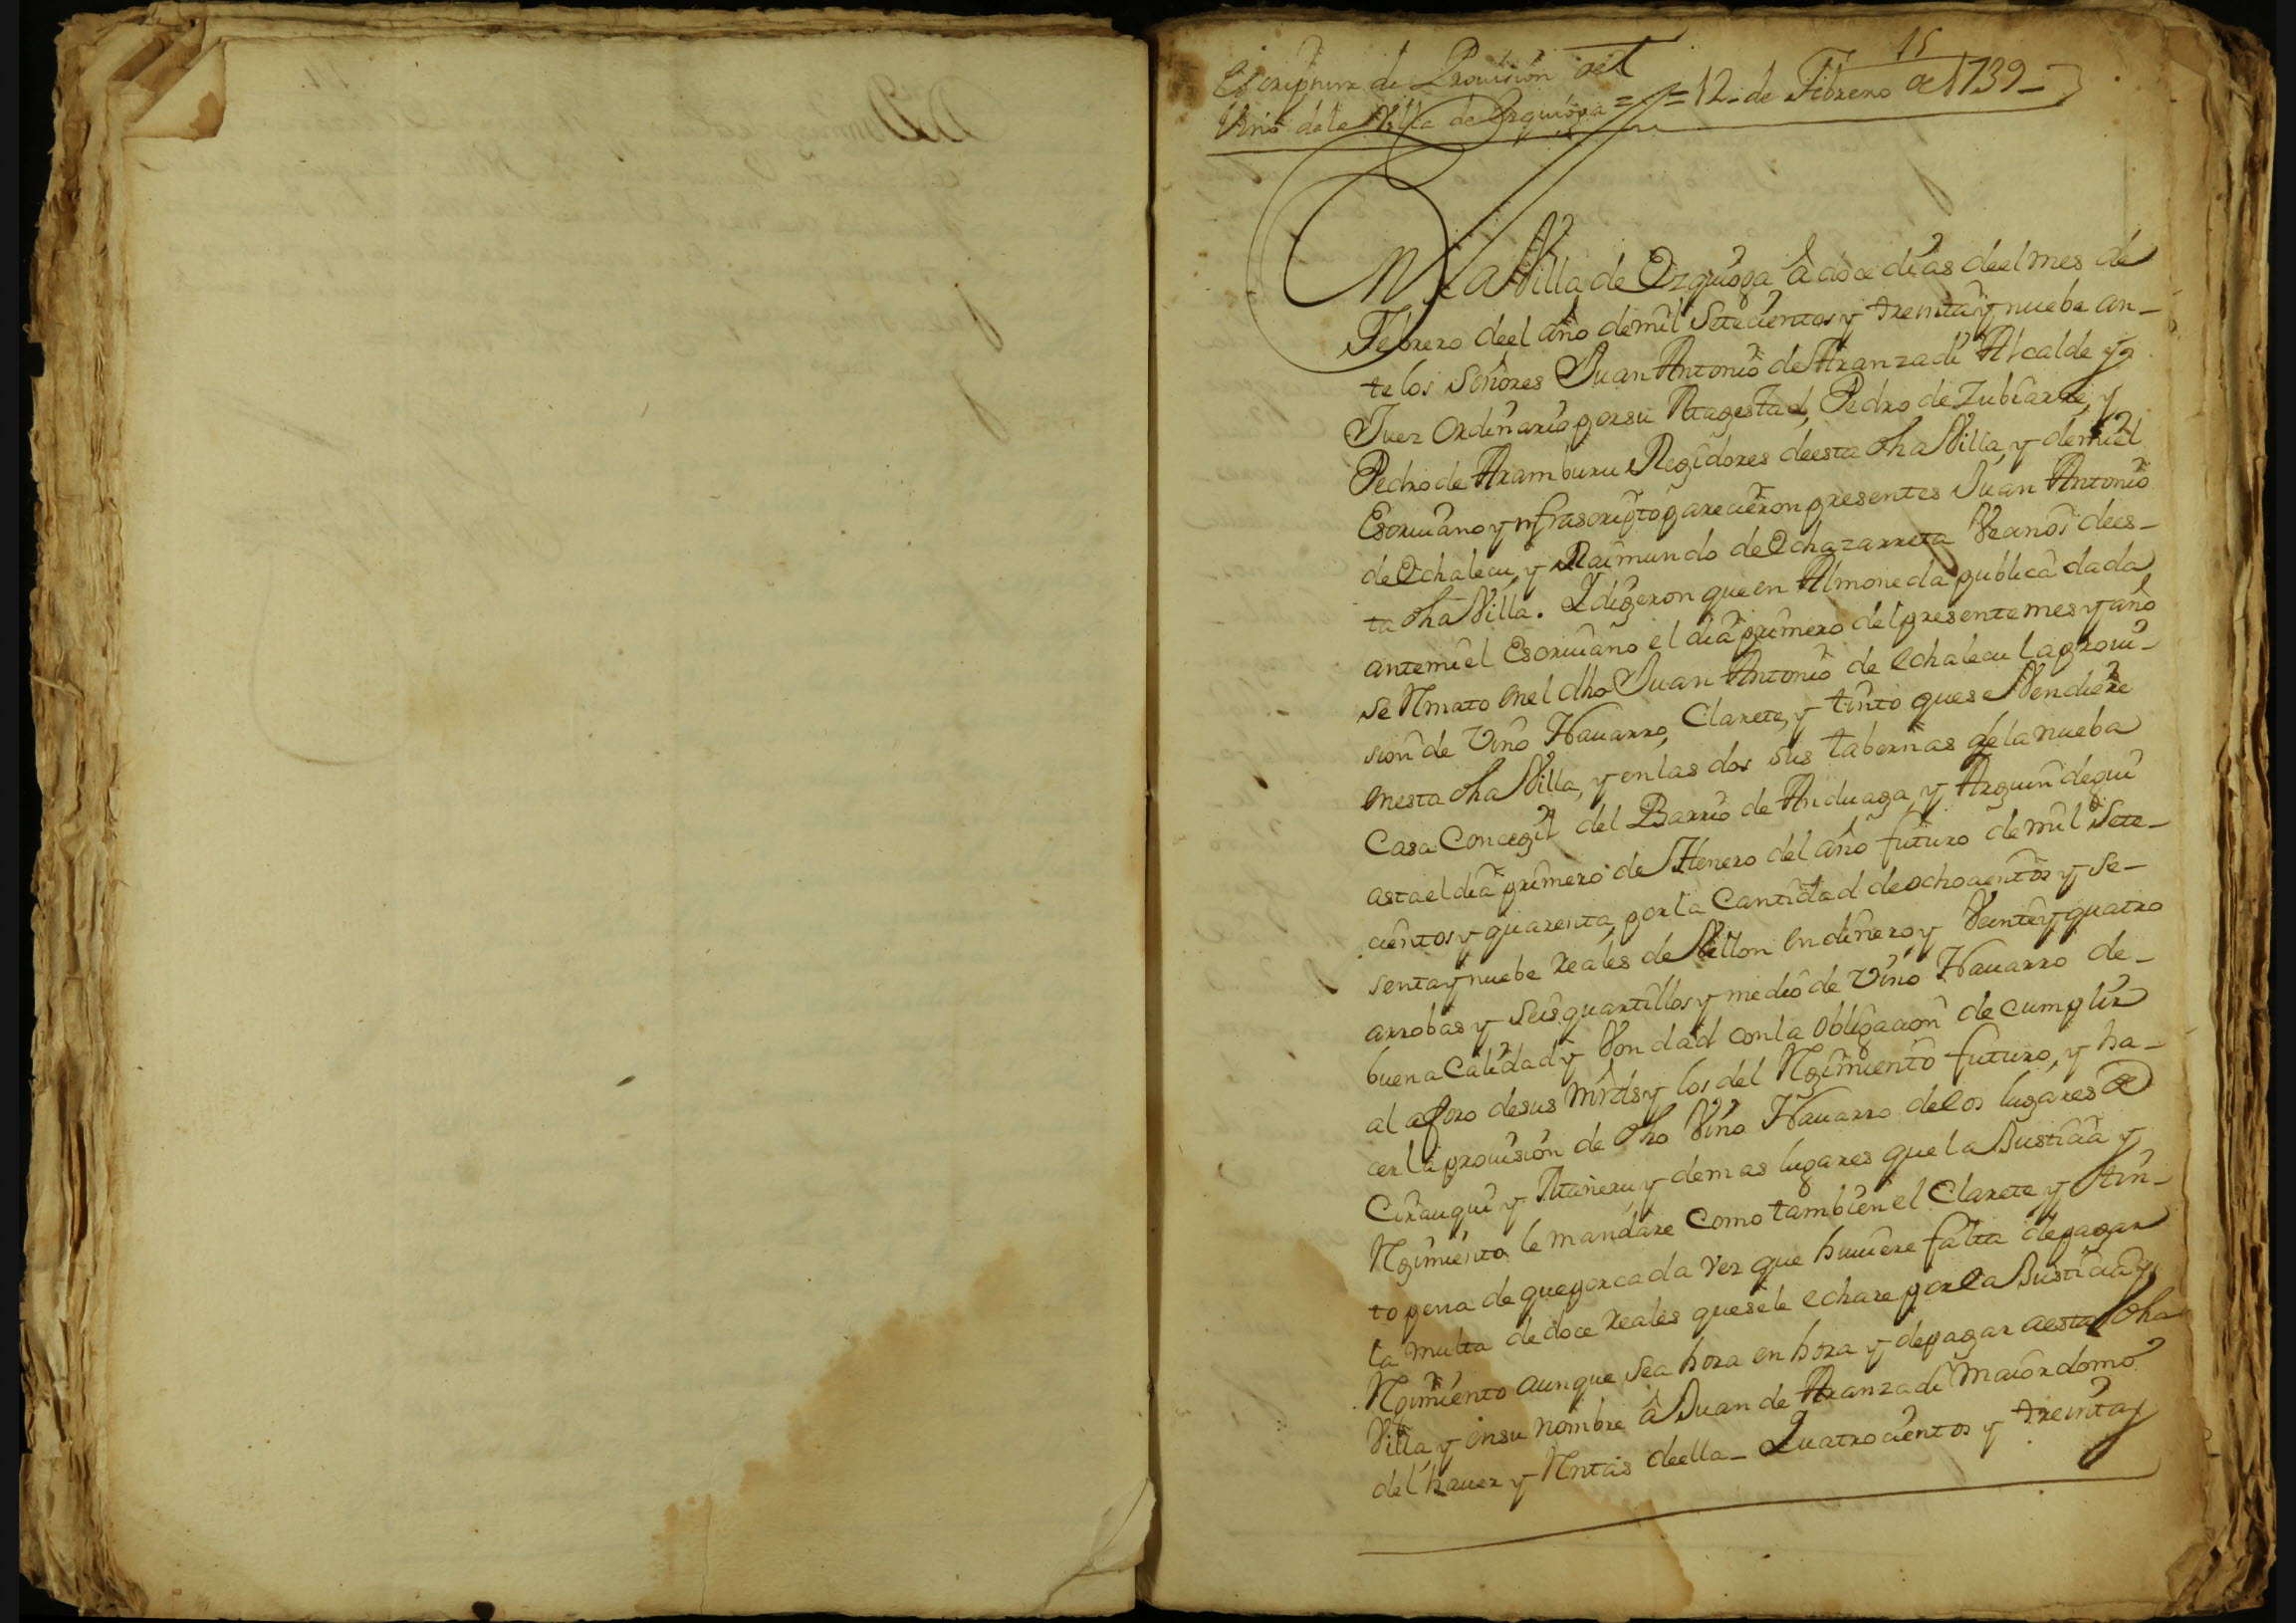 15
Escriptura de Provision del
Vino de la Villa de Ezquioga = = 12 de Febrero de 1739
En la Villa de Ezquioga â doce dias deel mes de
Febrero deel año de mil Setecientos y treinta y nuebe an-
te los Señores Juan Antonio de Aranzadi Alcalde y
Juez Ordinario por su Magestad, Pedro de Zubiarre, y
Pedro de Aramburu Regidores deesta dha Villa, y de mi el
Escriuano ynfrascripto parecieron presentes Juan Antonio
de Echalecu, y Raimundo de Ochazarreta Vecinos dees-
ta dha Villa. I digeron que en Almoneda publica dada
ante mi el Escriuano el dia primero del presente mes y año
se Rmato en el dho Juan Antonio de Echalecu la proui-
sion de Vino Nauarro, Clarete, y tinto que se Vendiere
en esta dha Villa, y en las dos sus tabernas de la nueba
Casa Concegil del Barrio de Anduaga y Arguindegui
asta el dia primero de Henero del año futuro de mil Sete-
cientos y quarenta, por la Cantidad de ochocientos y se-
senta y nuebe reales de Vellon en dinero y Veinte y quatro
arrobas y Seis quartillos y medio de Vino Nauarro de-
buena Calidad y Vondad con la obligacion de cumplir
al aforo de sus mrds y los del Rgimiento futuro, y ha-
cer la prouision de dho Vino Nauarro de los lugares de
Cirauqui y Mañeru y demas lugares que la Justicia y
Rgimiento le mandare Como tambien el Clarete y tin-
to pena de que por cada vez que huuiere falta de pagar
la multa de doce reales que se le echare por la Justicia y
Rgimiento aunque sea hora en hora y de pagar a esta dha
Villa y en su nombre â Juan de Aranzadi Maiordomo
del hauer y Rntas deella - Quatrocientos y treinta y